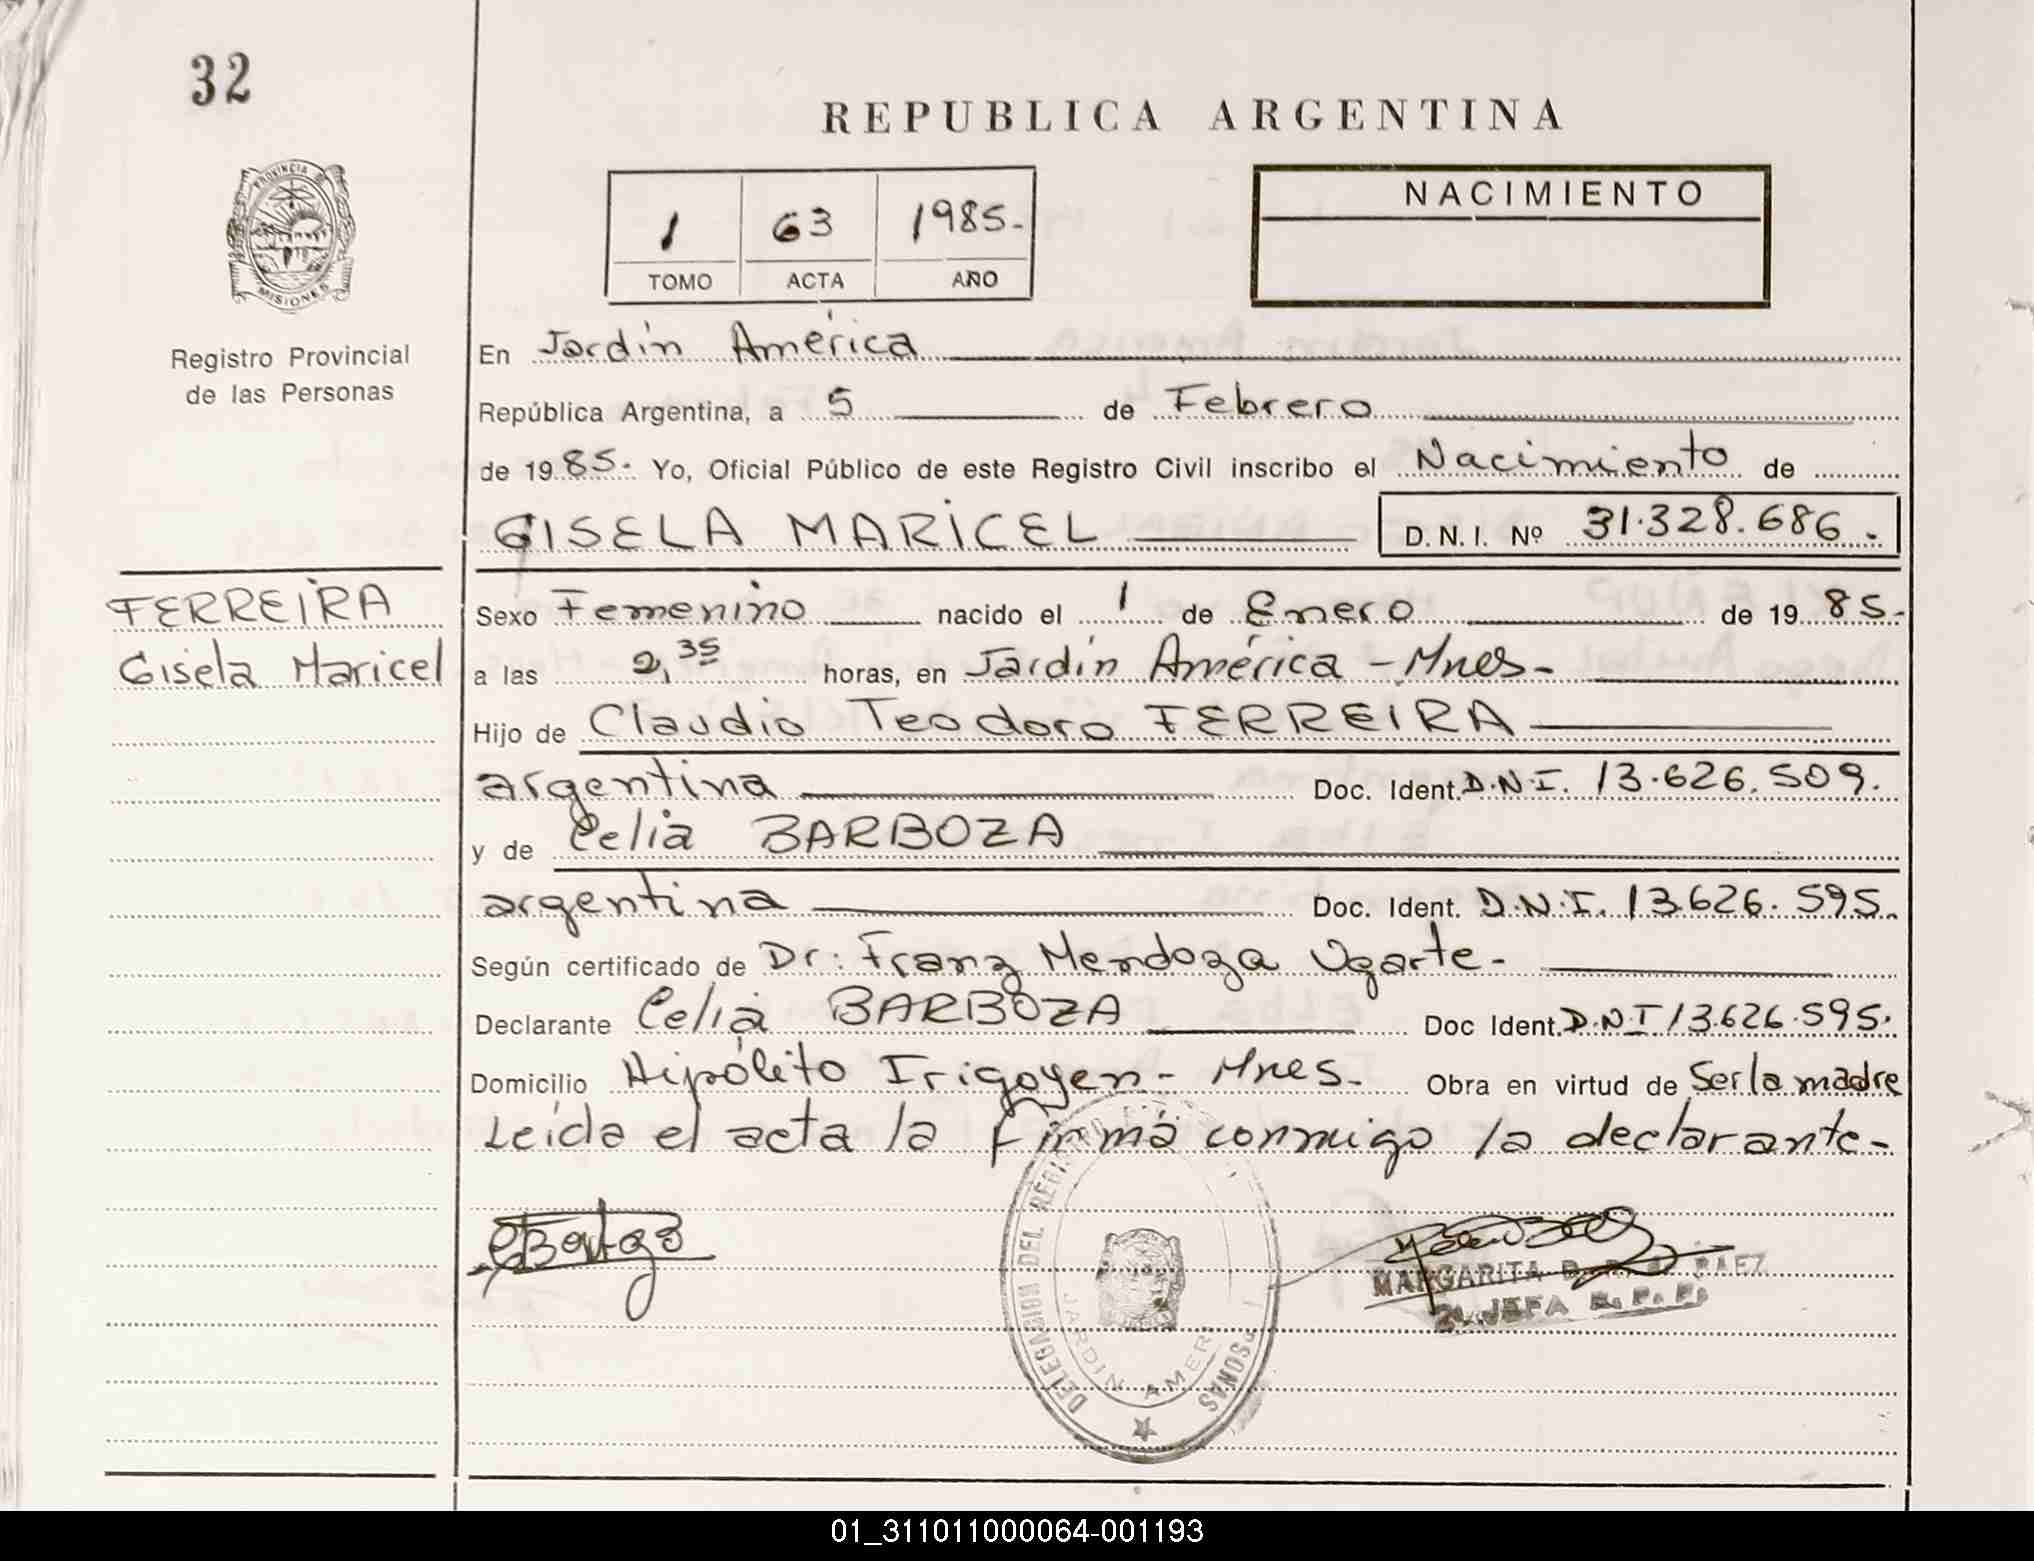 32
REPUBLICA ARGENTINA
PROVINCIA D
MISIONES
Registro Provincial
de las Personas
1 63 1985.-
TOMO ACTA AÑO
NACIMIENTO
En Jardín América
República Argentina, a 5 de Febrero
de 1985.- Yo, Oficial Público de este Registro Civil inscribo el Nacimiento de
GISELA MARICEL D. N. I. Nº 31.328.686.-
FERREIRA
Gisela Maricel
Sexo Femenino nacido el 1 de Enero de 1985.-
a las 2,35 horas, en Jardín América - Mnes-
Hijo de Claudio Teodoro FERREIRA
argentina Doc. Ident. D.N.I. 13.626.509.
y de Celia BARBOZA
argentina Doc. Ident. D.N.I. 13.626.595.
Según certificado de Dr: Franz Mendoza Ugarte-
Declarante Celia BARBOZA Doc Ident. D.N.I 13.626.595.
Domicilio Hipólito Irigoyen - Mnes. Obra en virtud de Ser la madre
Leída el acta la firma conmigo la declarante-
DELEGACION DEL REGISTRO SONAS
JARDIN AMERI
MARGARITA BAEZ
2ª JEFA R. P. P.
01_311011000064-001193